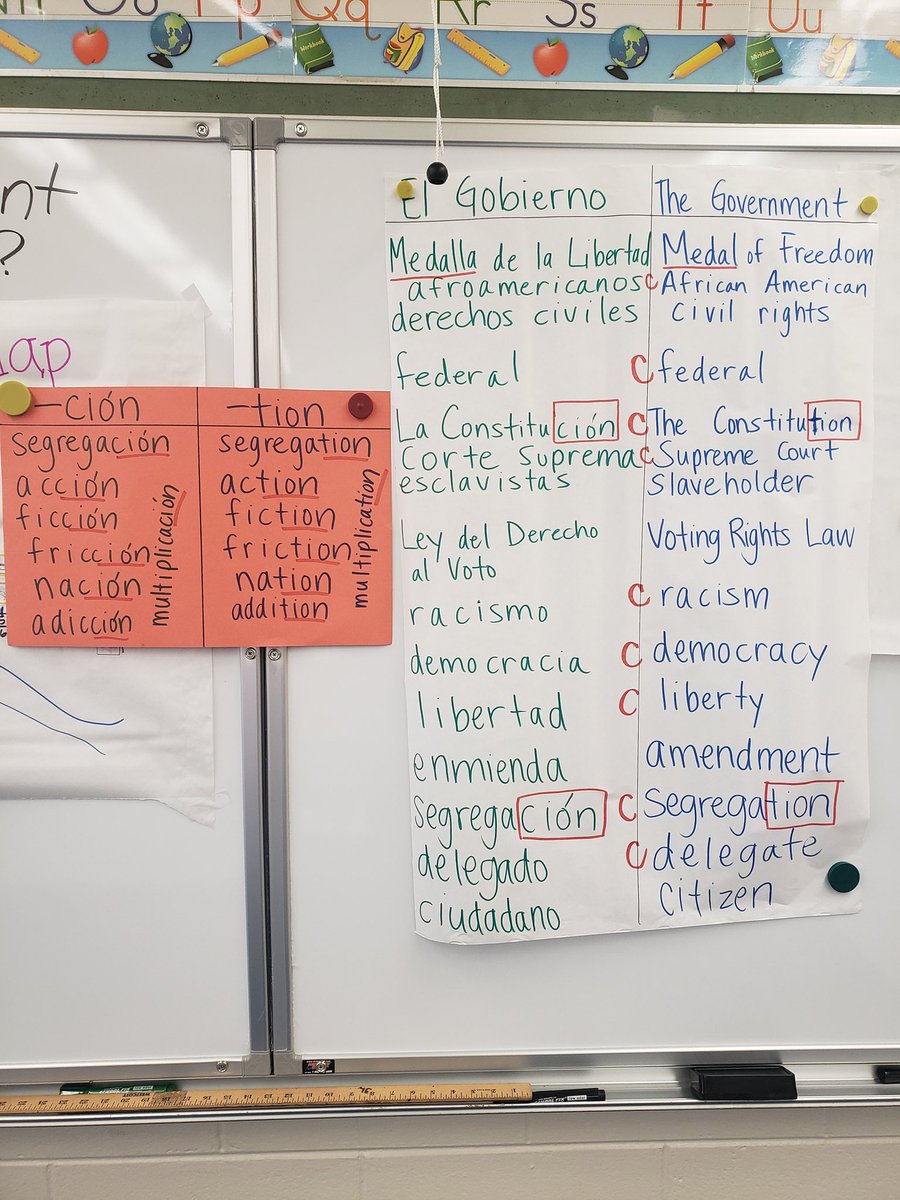 Pp Qq Rr Ss Tt Uu
Workbook
Workbook
nt
?
ap
-ción -tion
segregación segregation
acción action
ficción fiction
fricción friction
nación nation
adicción addition
multiplicación multiplication
El Gobierno The Government
Medalla de la Libertad Medal of Freedom
afroamericanos C African American
derechos civiles civil rights
federal C federal
La Constitución C The Constitution
Corte Suprema C Supreme Court
esclavistas slaveholder
Ley del Derecho Voting Rights Law
al Voto
racismo C racism
democracia C democracy
libertad C liberty
enmienda amendment
segregación C segregation
delegado C delegate
ciudadano citizen